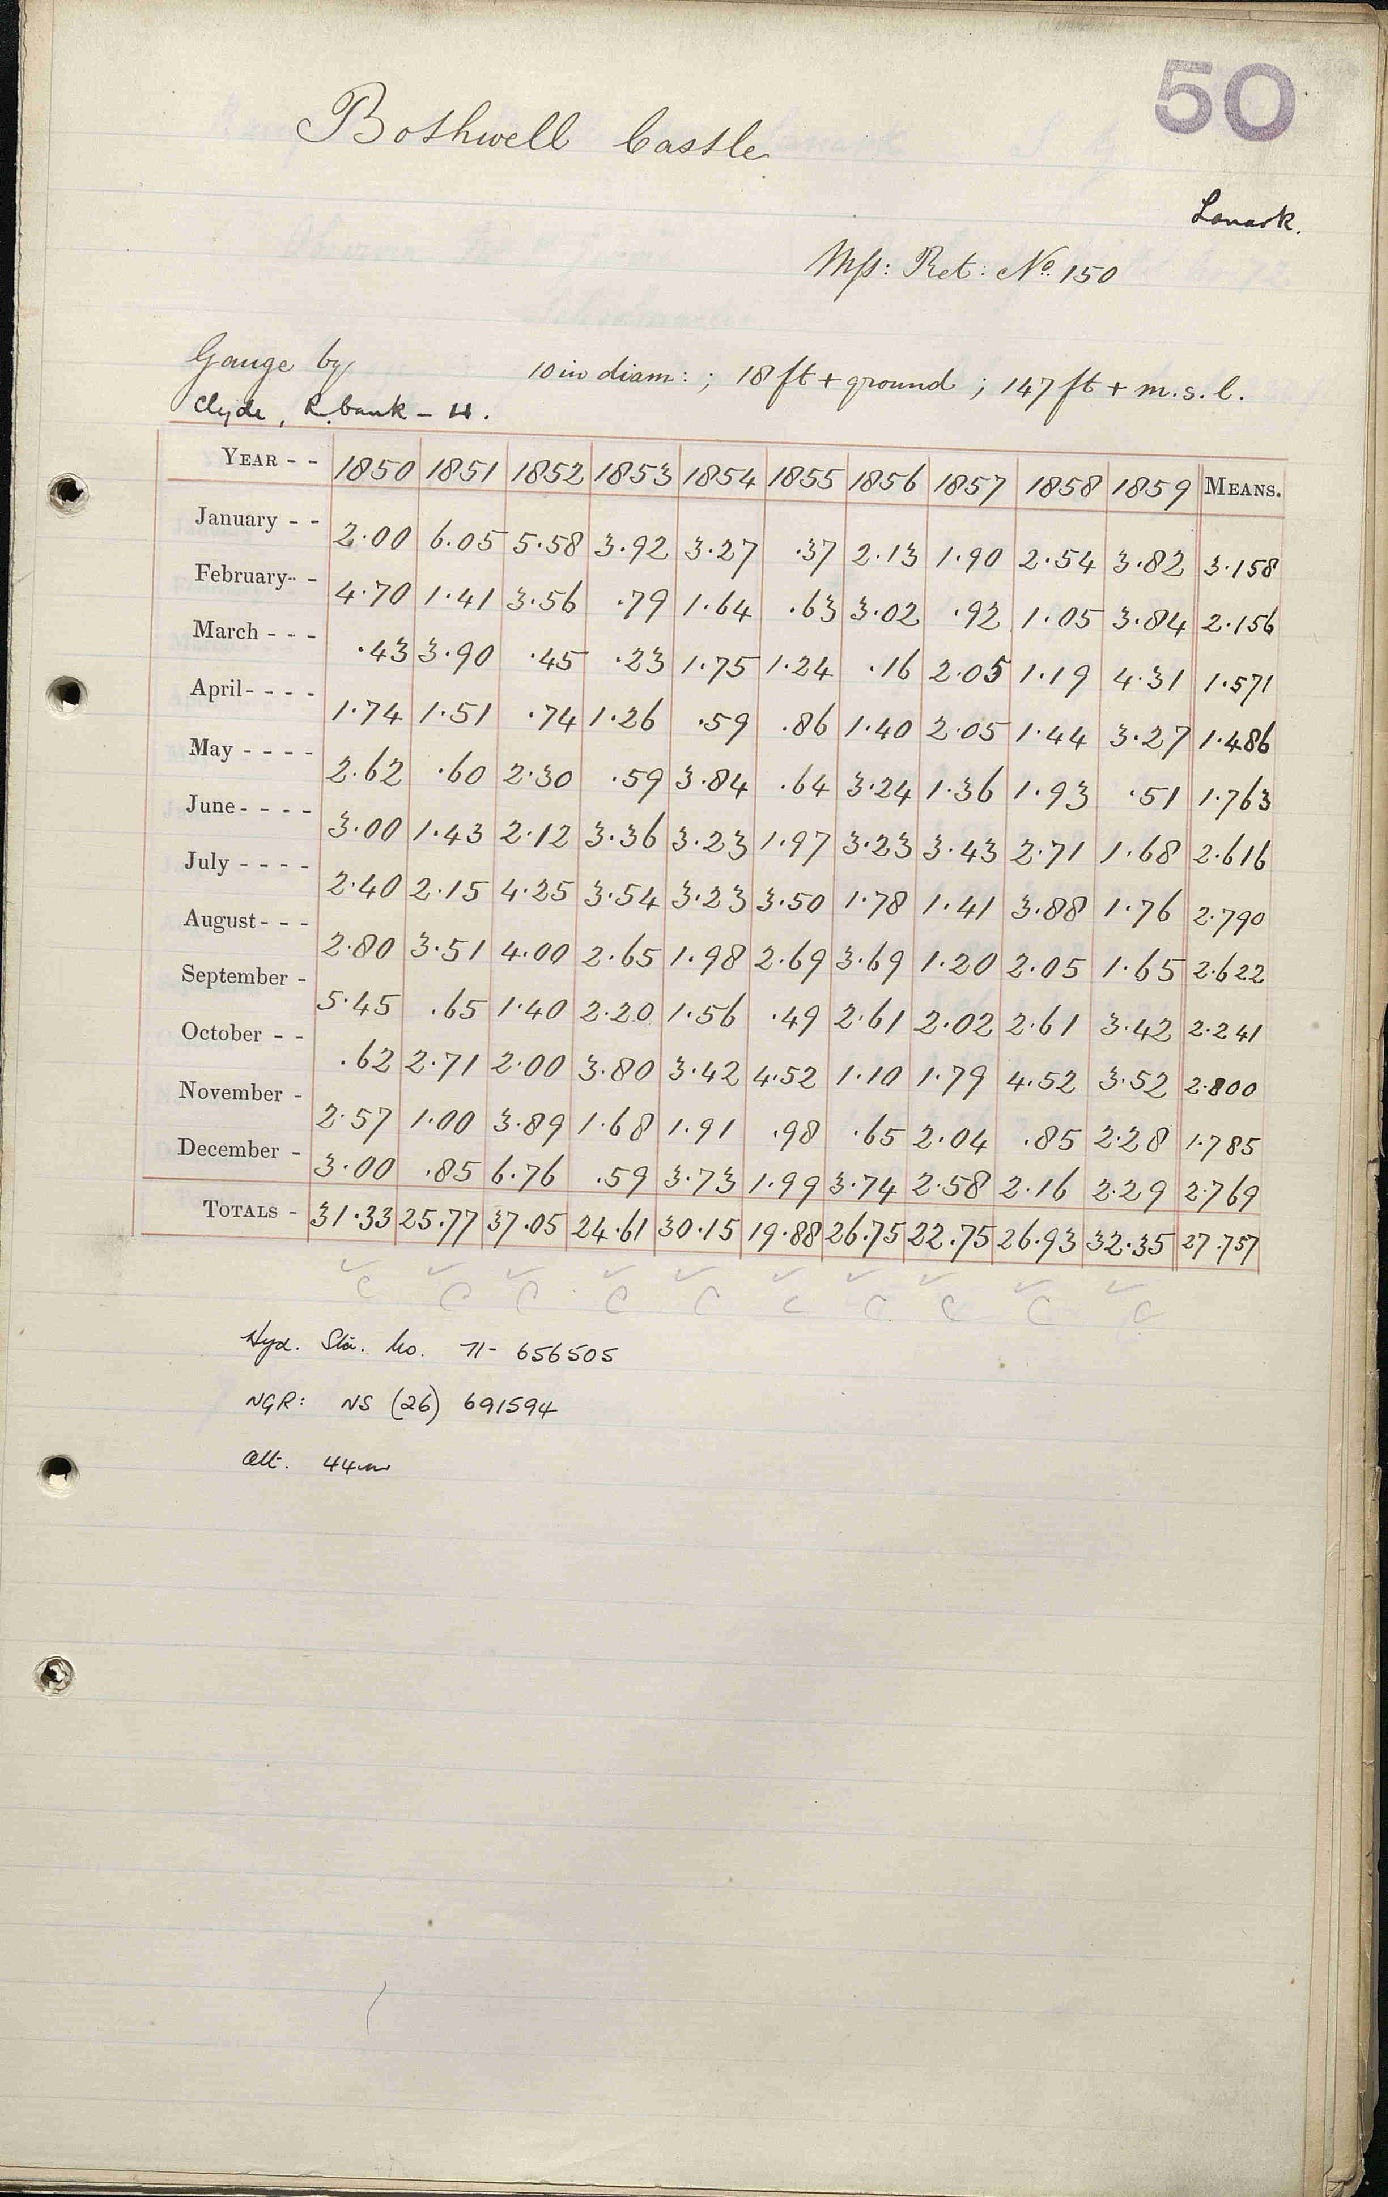 50
Bothwell Castle
Lanark.
Mss: Ret: No. 150
Gauge by 10 in diam: ; 18 ft + ground ; 147 ft + m.s.l.
Clyde, R. bank - 4.
YEAR - - 1850 1851 1852 1853 1854 1855 1856 1857 1858 1859 MEANS.
January - - 2.00 6.05 5.58 3.92 3.27 .37 2.13 1.90 2.54 3.82 3.158
February - - 4.70 1.41 3.56 .79 1.64 .63 3.02 .92 1.05 3.84 2.156
March - - - .43 3.90 .45 .23 1.75 1.24 .16 2.05 1.19 4.31 1.571
April - - - - 1.74 1.51 .74 1.26 .59 .86 1.40 2.05 1.44 3.27 1.486
May - - - - 2.62 .60 2.30 .59 3.84 .64 3.24 1.36 1.93 .51 1.763
June - - - - 3.00 1.43 2.12 3.36 3.23 1.97 3.23 3.43 2.71 1.68 2.616
July - - - - 2.40 2.15 4.25 3.54 3.23 3.50 1.78 1.41 3.88 1.76 2.790
August - - - 2.80 3.51 4.00 2.65 1.98 2.69 3.69 1.20 2.05 1.65 2.622
September - 5.45 .65 1.40 2.20 1.56 .49 2.61 2.02 2.61 3.42 2.241
October - - .62 2.71 2.00 3.80 3.42 4.52 1.10 1.79 4.52 3.52 2.800
November - 2.57 1.00 3.89 1.68 1.91 .98 .65 2.04 .85 2.28 1.785
December - 3.00 .85 6.76 .59 3.73 1.99 3.74 2.58 2.16 2.29 2.769
TOTALS - 31.33 25.77 37.05 24.61 30.15 19.88 26.75 22.75 26.93 32.35 27.757
✓ ✓ ✓ ✓ ✓ ✓ ✓ ✓ ✓ ✓
C C C C C C C C C C
Hyd. Sta. No. 71- 656505
NGR: NS (26) 691594
Alt. 44m